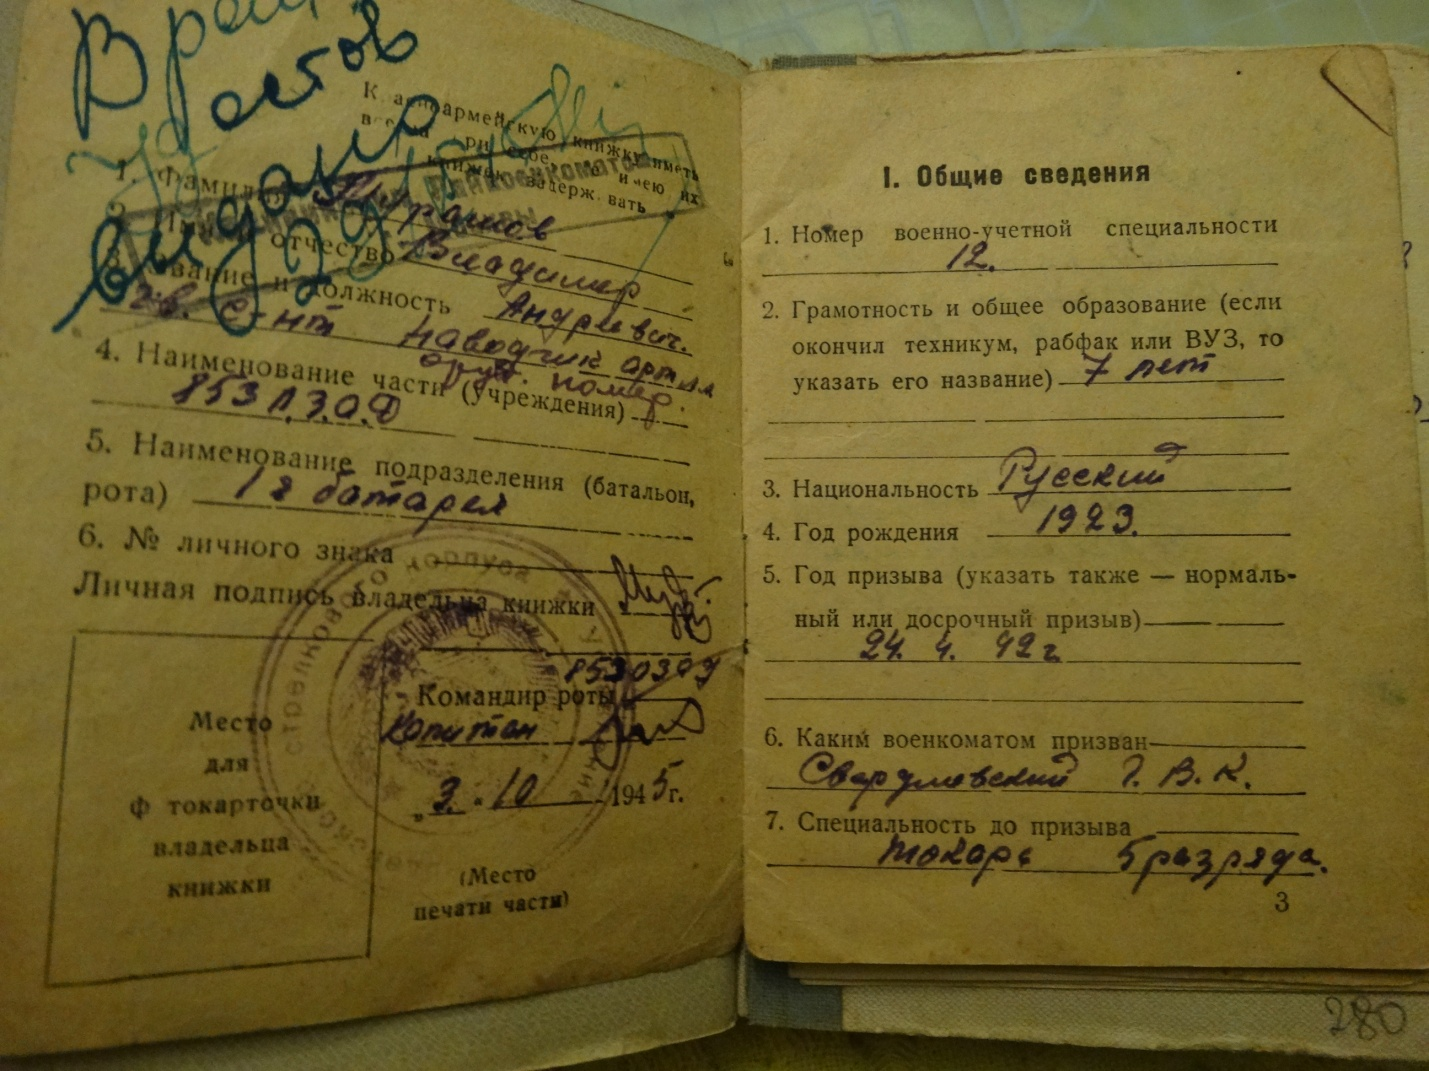 В
Ростов
выдано
Красноармейскую книжку иметь
всегда при себе. Не имеющих
книжек задерживать
райвоенкомат
1. Фамилия
2. Имя и отчество Владимер
Андревич.
3. Звание и должность
гв. с-нт наводчик артил
оруд. номер.
4. Наименование части (учреждения)
853 А.З.О.Д
5. Наименование подразделения (батальон,
рота) 1я батарея
6. № личного знака
Личная подпись владельца книжки
стрелкового корпуса
Командир роты
Копитан
„ 3. " 10 1945г.
Место
для
ф токарточки
владельца
книжки
(Место
печати части)
I. Общие сведения
1. Номер военно-учетной специальности
12.
2. Грамотность и общее образование (если
окончил техникум, рабфак или ВУЗ, то
указать его название) 7 лет
3. Национальность Русский
4. Год рождения 1923.
5. Год призыва (указать также — нормаль-
ный или досрочный призыв)
24. 4. 42 г
6. Каким военкоматом призван
Свердловский Г. В. К.
7. Специальность до призыва
токарь 5 разряда.
3
280